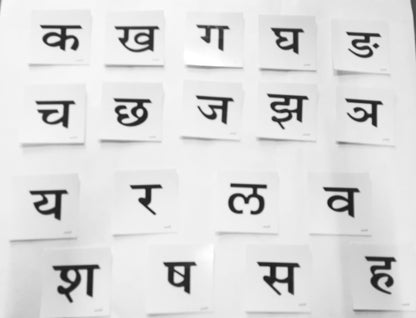 क ख ग घ ङ
च छ ज झ ञ
य र ल व
श ष स ह